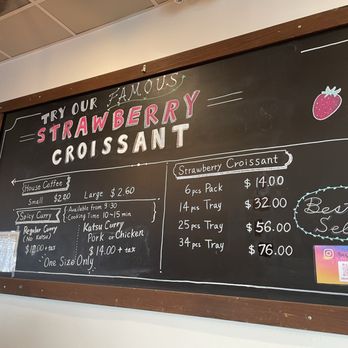 TRY OUR FAMOUS
STRAWBERRY
CROISSANT
House Coffee
Small $2.60 Large $2.60
Spicy Curry
Available from 9:30
Cooking Time 10~15 min
Regular Curry
(No Katsu)
+ tax
Katsu Curry
Pork or Chicken
$14.00 + tax
One Size Only
Strawberry Croissant
6 pcs Pack $14.00
14 pcs Tray $32.00
25 pcs Tray $56.00
34 pcs Tray $76.00
Best
Sel